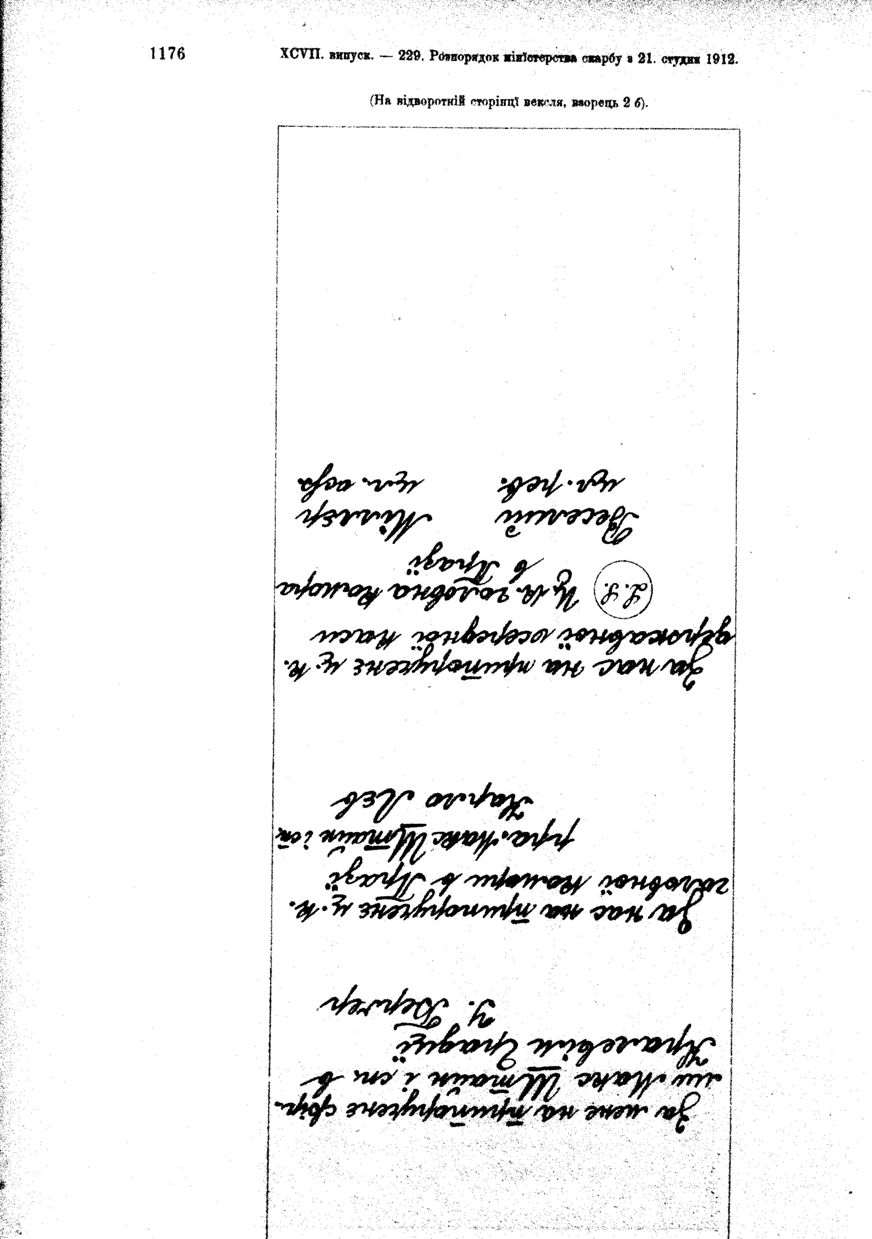 1176 XCVII. випуск. — 229. Розпорядок мінїстерства скарбу з 21. студня 1912.
(На відворотній сторінцї векселя, взорець 2 б).
За мене на припорученє фір-
ми Макс Штайн і сп. в
Кралевім Градцї
Бергер
За нас на припорученє ц. к.
головної комори в Празї
ppa. Макс Штайн і сп.
Карло Лєв
За нас на припорученє ц. к.
державної осередної каси
L. S. Ц. к. головна комора
в Празї
Веселий Міллєр
цл. рев. цл.